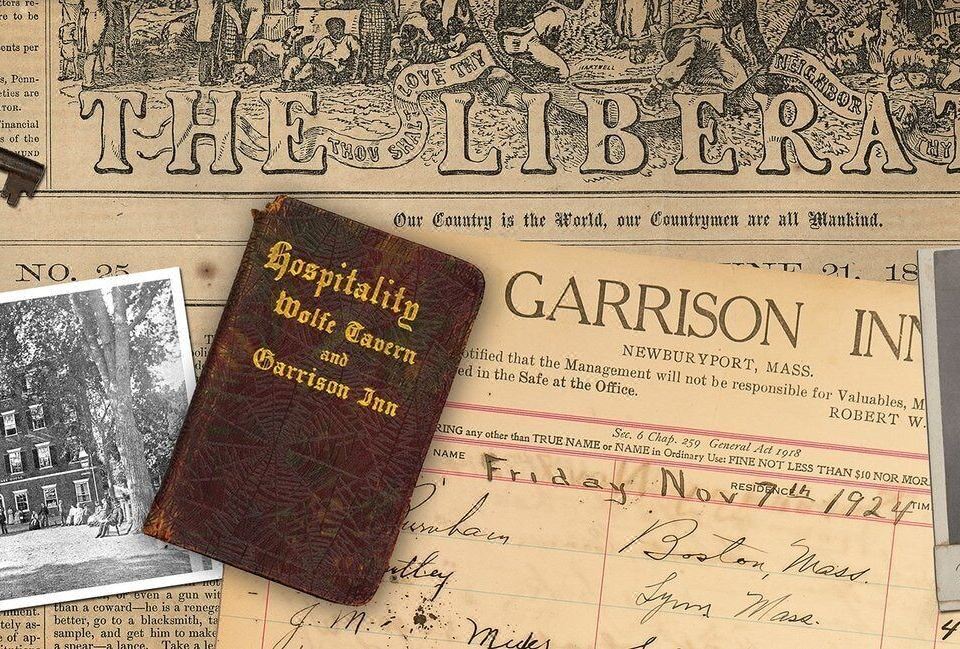 tors re-
re to be
ents per
s, Penn-
eties are
TOR.
Financial
s of the
MUND
LOVE THY
NEIGHBOR
THOU SHALT
THY
THE LIBERAT
Our Country is the World, our Countrymen are all Mankind.
NO. 25
UNE 21, 18
Hospitality
Wolfe Tavern
and
Garrison Inn
GARRISON INN
NEWBURYPORT, MASS.
otified that the Management will not be responsible for Valuables, M
ed in the Safe at the Office.
ROBERT W.
Sec. 6 Chap. 259 General Act 1918
RING any other than TRUE NAME or NAME in Ordinary Use: FINE NOT LESS THAN $10 NOR MOR
NAME RESIDENCE TIM
Friday Nov 7th 1924
Burnham Boston, Mass.
Lynn Mass.
J. M.
or even a gun wit
than a coward—he is a renega
better, go to a blacksmith, ta
sample, and get him to make
a spear—a lance. Take a le
ment.
tely as-
e of ap-